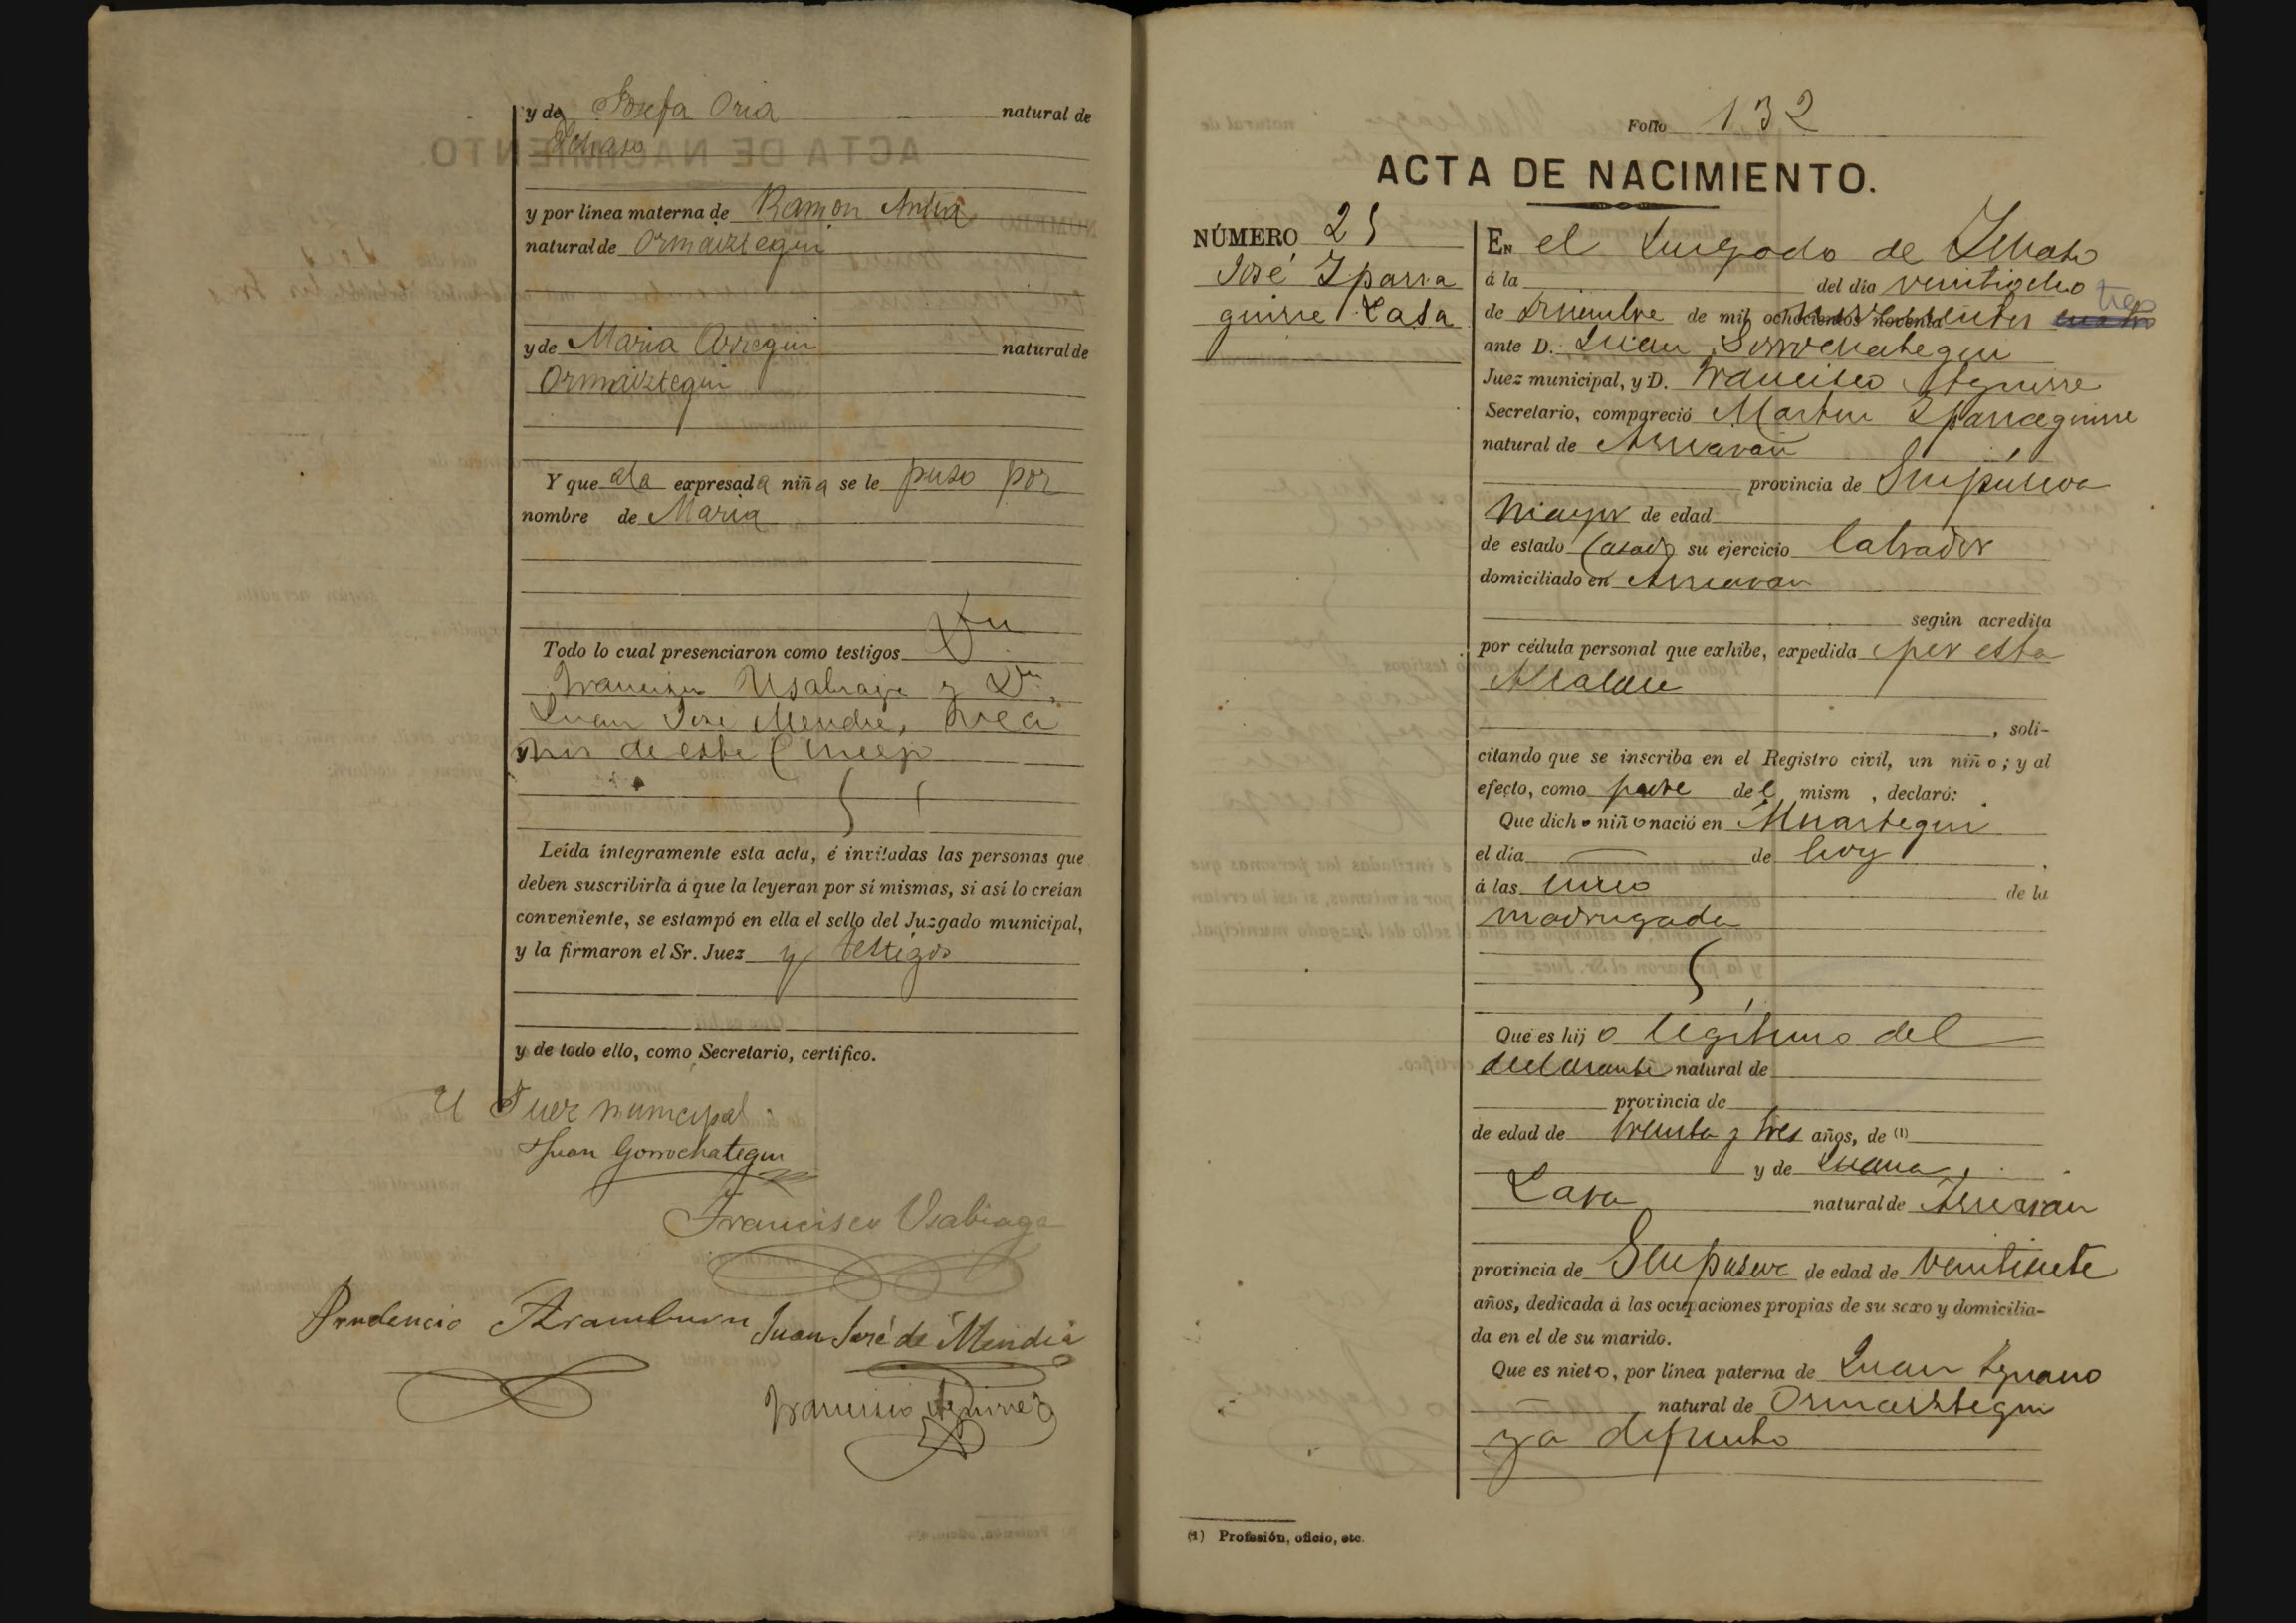 y de Josefa Oria natural de
Ichaso
y por línea materna de Ramon Antia
natural de Ormaiztegui
y de Maria Arregui natural de
Ormaiztegui
Y que ala expresada niña se le puso por
nombre de Maria
Todo lo cual presenciaron como testigos Dn
Francisco Usabiaga y Dn
Juan José Mendia, veci
nos de este Concejo
Leída íntegramente esta acta, é invitadas las personas que
deben suscribirla á que la leyeran por sí mismas, si así lo creían
conveniente, se estampó en ella el sello del Juzgado municipal,
y la firmaron el Sr. Juez y testigos
y de todo ello, como Secretario, certifico.
El Juez municipal
Juan Gorrochategui
Francisco Usabiaga
Prudencio Aramburu
Juan José de Mendia
Francisco Aguirre
Folio 132
ACTA DE NACIMIENTO.
NÚMERO 25
José Yparra
guirre Lasa
En el Juzgado de Ichaso
á la del día veintiocho
de Diciembre de mil ochocientos noventa tres
ante D. Juan Gorrochategui
Juez municipal, y D. Francisco Aguirre
Secretario, compareció Martin Yparraguirre
natural de Arriaran
provincia de Guipúzcoa
mayor de edad
de estado casado su ejercicio labrador
domiciliado en Arriaran
según acredita
por cédula personal que exhibe, expedida por esta
Alcaldia
, soli-
citando que se inscriba en el Registro civil, un niño; y al
efecto, como padre del mism , declaró:
Que dicho niño nació en
el día de hoy
á las cinco de la
madrugada
Que es hijo legítimo del
declarante natural de
provincia de
de edad de treinta y tres años, de (1)
y de Juana
Lasa natural de Arriaran
provincia de Guipuzcoa de edad de veintisiete
años, dedicada á las ocupaciones propias de su sexo y domicilia-
da en el de su marido.
Que es nieto, por línea paterna de Juan Ygnacio
natural de Ormaiztegui
ya difunto
(1) Profesión, oficio, etc.